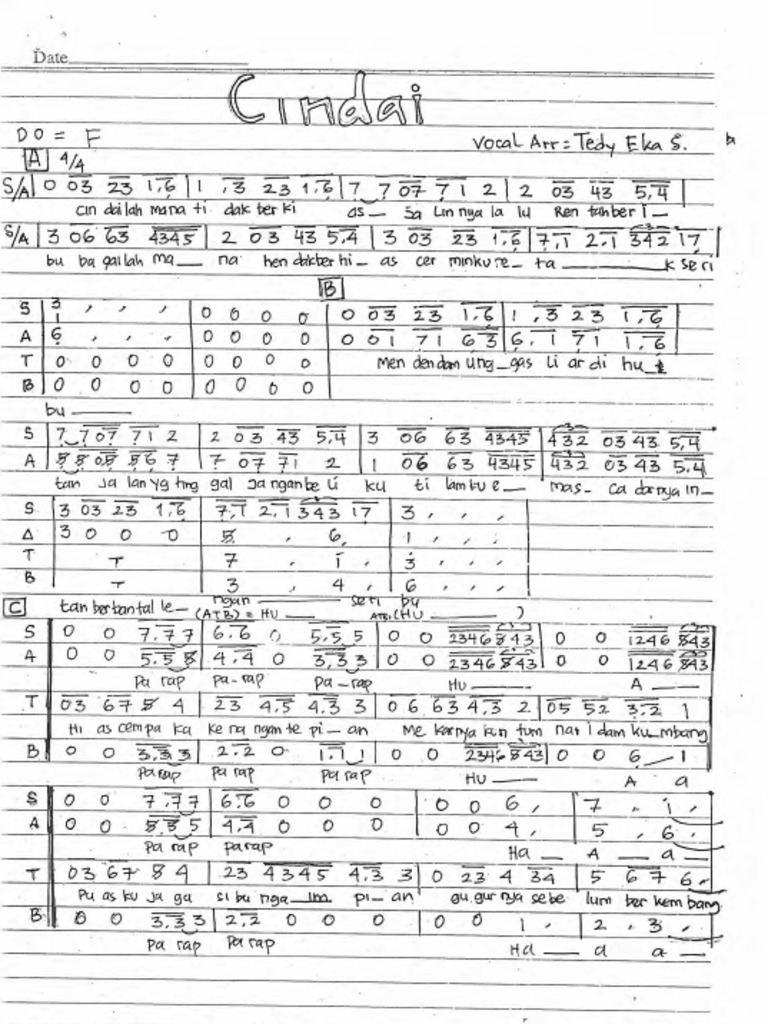 Date
Cindai
DO = F
Vocal Arr = Tedy Eka S.
A 4/4
S/A | 0 03 23 1.6 | 1 .3 23 1.6 | 7 7 07 71 2 | 2 03 43 5.4 |
cin dailah mana ti dak ber ki as_ Sa Lin nya la lu Ren tah ber i_
S/A | 3 06 63 4345 | 2 03 43 5.4 | 3 03 23 1.6 | 7.1 2.1 342 17 |
bu ba gailah ma__ na hen dak ber hi_ as cer min ku re_ ta ______ k seri
B
S | 3 1 , , , | 0 0 0 0 | 0 03 23 1.6 | 1 .3 23 1.6 |
A | 6 . . . | 0 0 0 0 | 0 01 71 63 | 6. 1 71 1.6 |
T | 0 0 0 0 | 0 0 0 0 | Men dendam ung_gas Li ar di hu_
B | 0 0 0 0 | 0 0 0 0 |
bu ____
S | 7 7 07 71 2 | 2 03 43 5.4 | 3 06 63 4345 | 432 03 43 5.4
A | 5 5 05 56 7 | 7 07 71 2 | 1 06 63 4345 | 432 03 43 5.4
tan Ja lan yg ting gal Ja ngan be Li ku ti lam ku e__ mas_ Ca darnya in_
S | 3 03 23 1.6 | 7.1 2.1 343 17 | 3 , , ,
A | 3 0 0 0 | 5 . 6, | 1 . . .
T | T | 7 . 1 . | 3 . . .
B | T | 3 . 4 , | 6 . . .
C tan ber bantal le_ ngan ______ seri bu
(ATB) = HU ____ ATB (HU ______ )
S | 0 0 7.7 7 | 6.6 0 5.5 5 | 0 0 2346 543 | 0 0 1246 543
A | 0 0 5.5 5 | 4.4 0 3.3 3 | 0 0 2346 543 | 0 0 1246 543
Pa rap pa-rap pa_rap Hu ____ A ____
T 03 67 5 4 | 23 4.5 4.3 3 | 0 6 63 4.3 2 | 05 52 3.2 1
Hi as cempa ka ke na ngan te pi_ an Me karnya kun tum nan i dam ku_mbang
B | 0 0 3.3 3 | 2.2 0 1.1 1 | 0 0 2346 543 | 0 0 6_1
Pa rap Pa rap Pa rap HU ____ A a
S | 0 0 7.7 7 | 6.6 0 0 0 | 0 0 6, | 7 . 1 .
A | 0 0 5.5 5 | 4.4 0 0 0 | 0 0 4 , | 5 . 6 .
Pa rap pa rap Ha _ A _ a_
T 03 67 5 4 | 23 4345 4.3 3 | 0 23 4 34 | 5 6 7 6.
Pu as ku Ja ga si bu nga_im pi_ an gu.gur nya sebe lum ber kem bang
B | 0 0 3.3 3 | 2.2 0 0 0 | 0 0 1 . | 2 . 3 .
Pa rap Pa rap Ha __ a a __